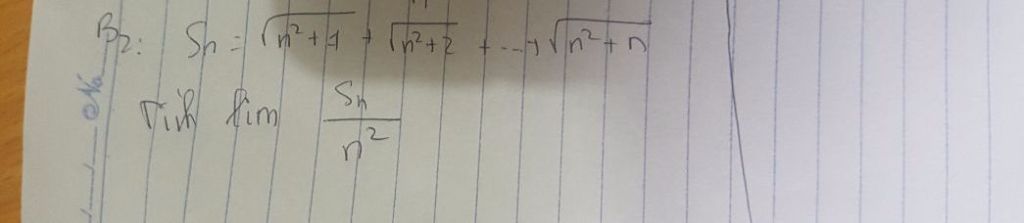 B2: Sn = √(n²+1) + √(n²+2) + ... + √(n²+n)
Tính lim Sn/n²